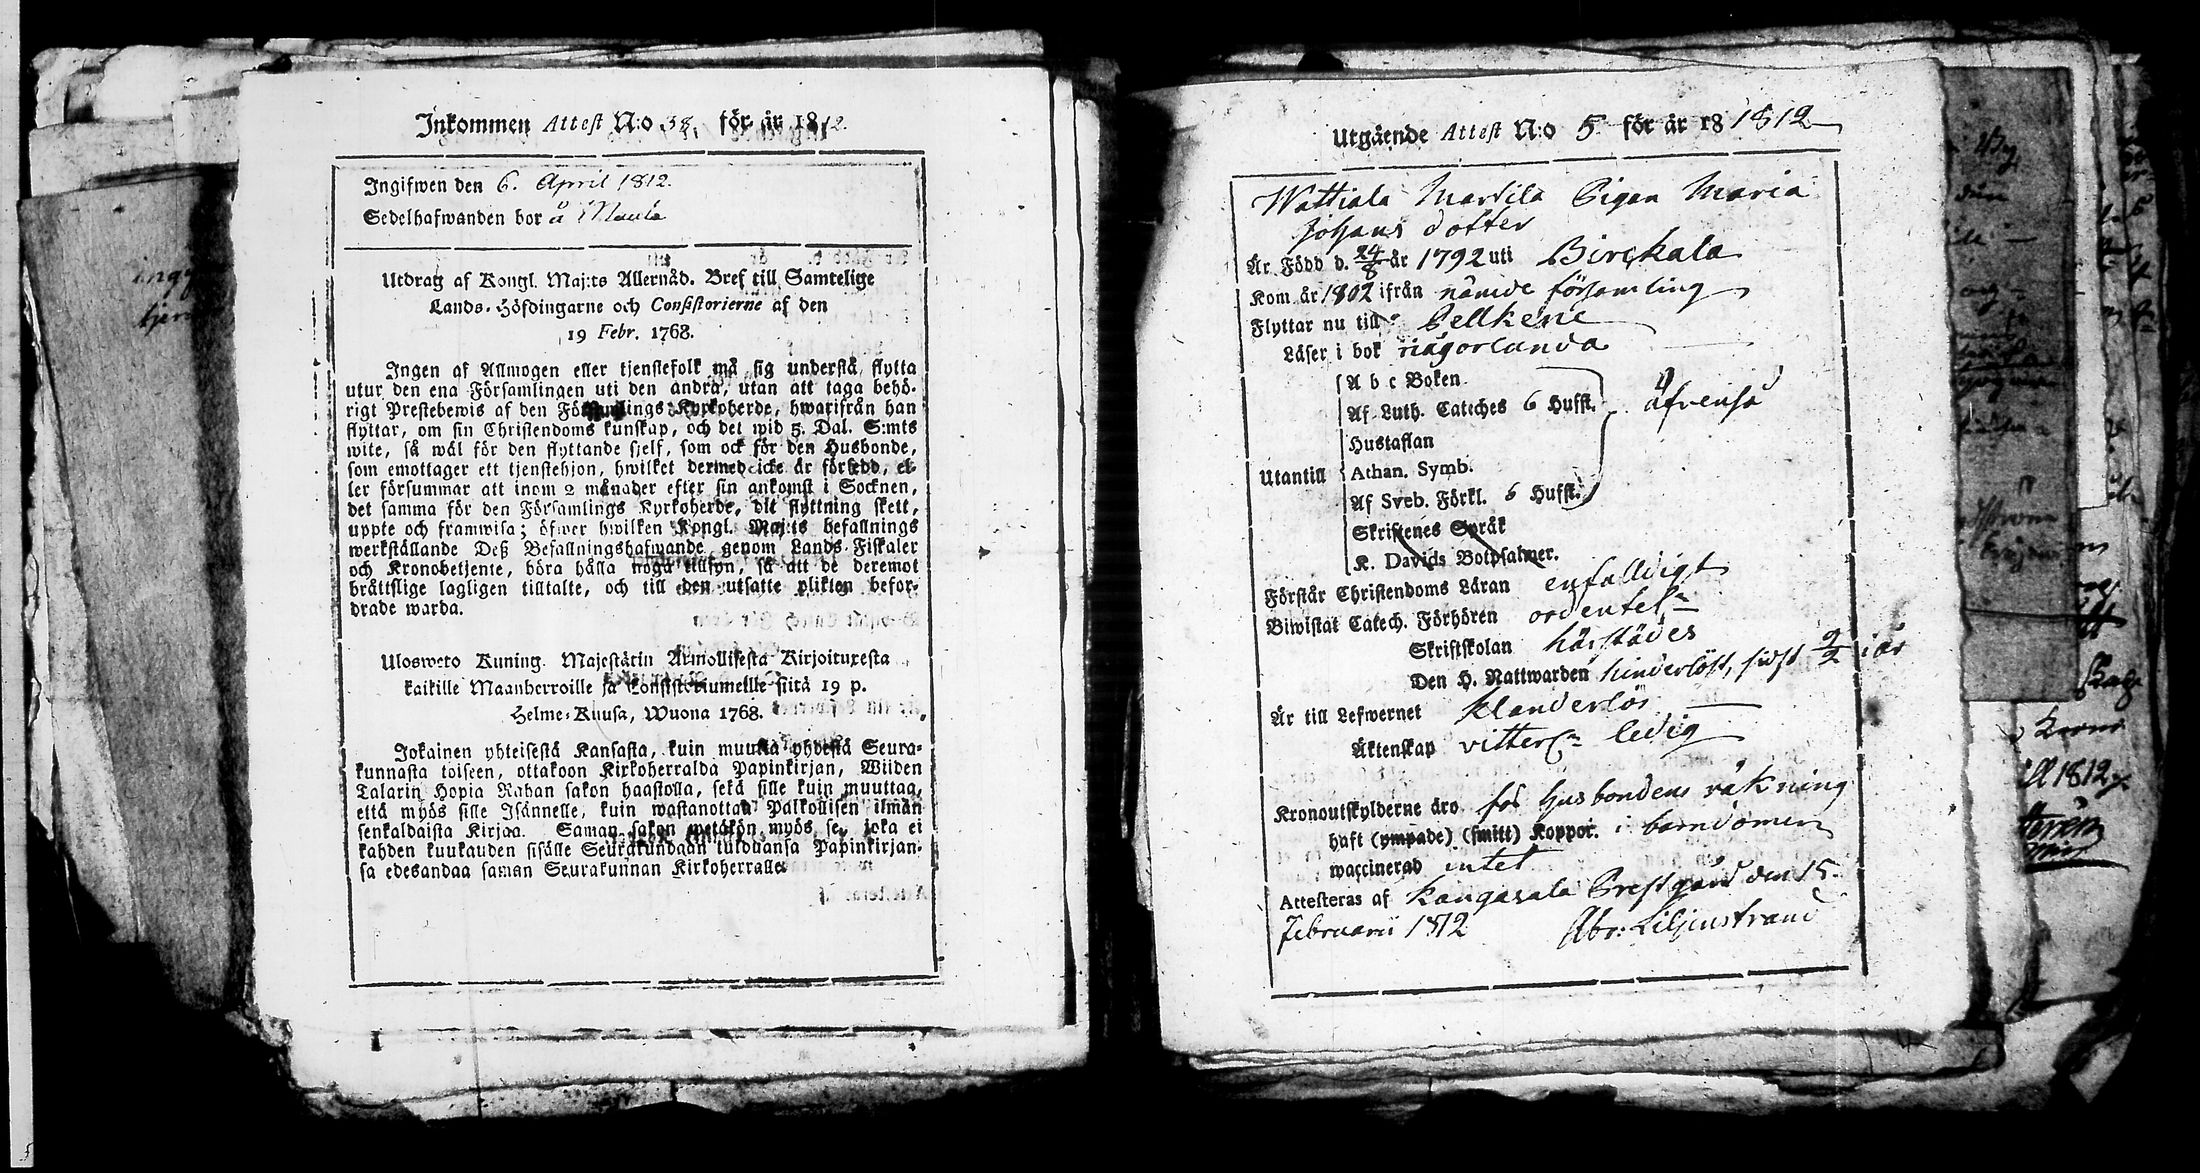 Inkommen Attest N:o 38. för år 1812.
Ingifwen den 6. April 1812.
Sedelhafwanden bor å
Utdrag af Kongl. Maj:ts Allernåd. Bref till Samtelige
Lands-Höfdingarne och Consistorierne af den
19 Febr. 1768.
Ingen af Allmogen eller tjenstefolk må sig understå flytta
utur den ena Församlingen uti den andra, utan att taga behö-
rigt Prestebewis af den Församlings Kyrkoherde, hwarifrån han
flyttar, om sin Christendoms kunskap, och det wid 5. Dal. S:mts
wite, så wäl för den flyttande sjelf, som ock för den Husbonde,
som emottager ett tjenstehjon, hwilket dermed icke är försedd, el-
ler försummar att inom 2 månader efter sin ankomst i Socknen,
det samma för den Församlings Kyrkoherde, dit flyttning skett,
uppte och framwisa; öfwer hwilken Kongl. Maj:ts befallnings
werkställande Deß Befallningshafwande genom Lands-Fiskaler
och Kronobetjente, böra hålla noga tillsyn, så att de deremot
bråttslige lagligen tilltalte, och till den utsatte plikten befor-
drade warda.
Uloswetö Kuning. Majestätin Armollisesta Kirjoituxesta
kaikille Maanherroille ja Konsistoriumeille siitä 19 p.
Helme-Kuusa, Wuona 1768.
Jokainen yhteisestä Kansasta, kuin muutta yhdestä Seura-
kunnasta toiseen, ottakoon Kirkoherralda Papinkirjan, Wiiden
Talarin Hopia Rahan sakon haastolla, sekä sille kuin muuttaa,
että myös sille Isännelle, kuin wastanottaa Palkollisen ilman
senkaldaista Kirjaa. Saman sakon wetäkön myös se, joka ei
kahden kuukauden sisälle Seurakundaan tulduansa Papinkirjan-
sa edesandaa saman Seurakunnan Kirkoherralle.
Utgående Attest N:o 5 för år 18 1812
Wattiala Marttila Pigan Maria
Johans dotter
Är Född d. 24/8 år 1792 uti Birckala
Kom år 1802 ifrån nämde församling
Flyttar nu till Pellkene
Läser i bok någorlunda
A b c Boken
Af Luth. Cateches 6 Hufst. äfvenså
Hustaflan
Utantill Athan. Symb.
Af Sveb. Förkl. 6 Hufst.
Skriftenes Språk
K. Davids Botpsalmer.
Förstår Christendoms Läran enfalldigt
Biwistat Catech. Förhören ordentel:n
Skriftskolan härstädes
Den H. Nattwarden hinderlöst, sidst 2/2 i år
Är till Lefwernet klanderlös
Äktenskap vitterl:n ledig
Kronoutskylderne äro för husbondens räkning
haft (ympade) (smitt) Koppor. i barndomen
waccinerad intet
Attesteras af Kangasala Prestgård den 15.
Februarii 1812 Abr: Liljenstrand